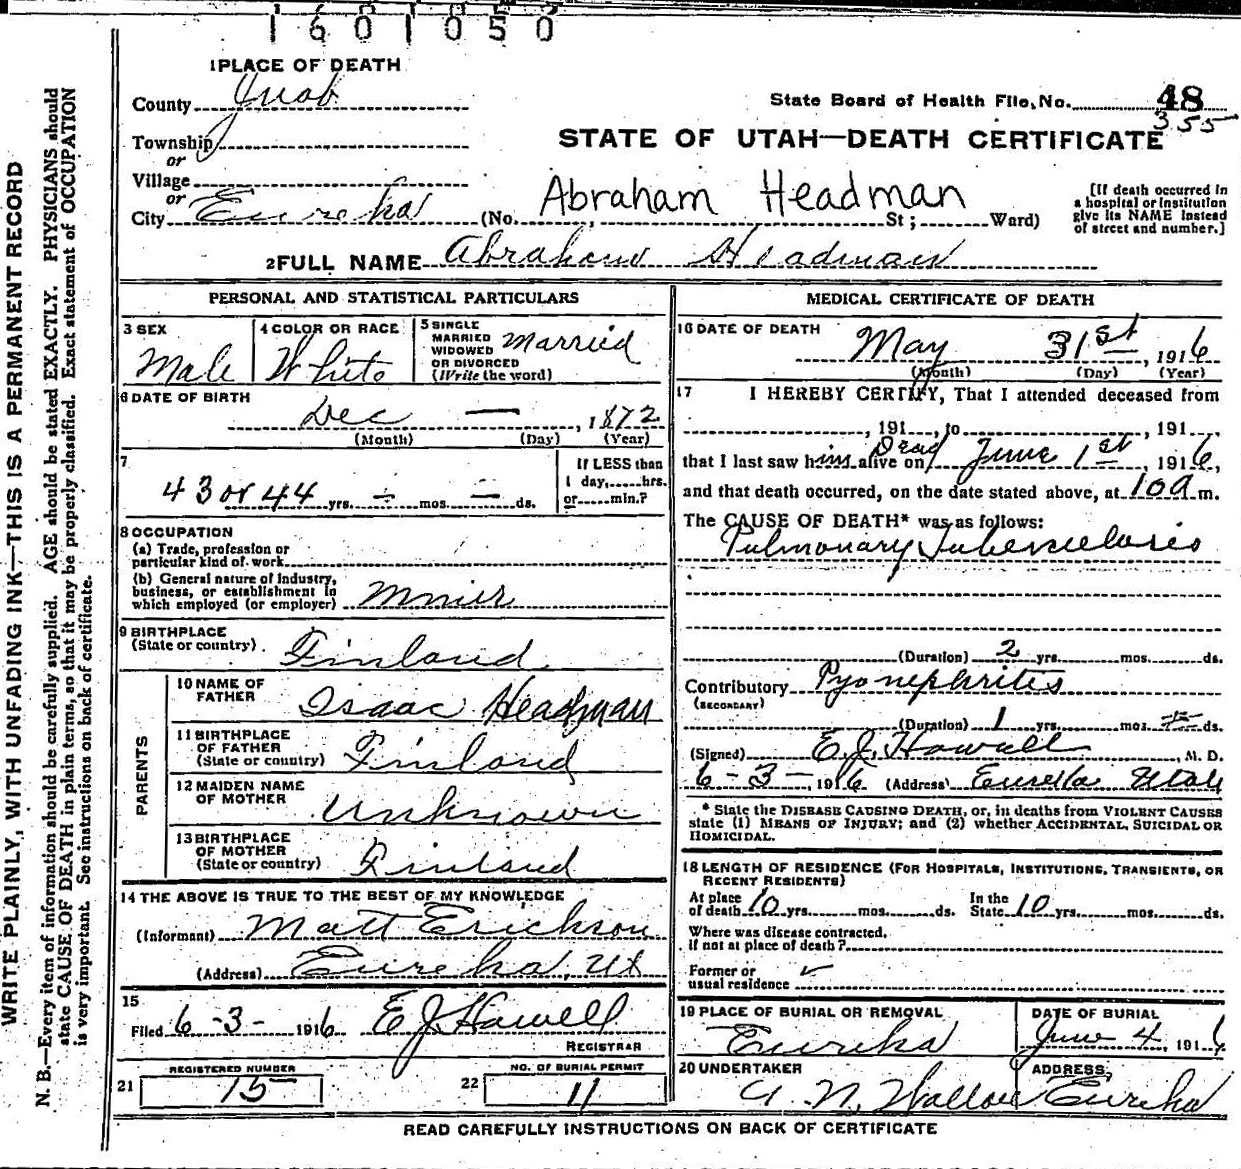 1601050
1 PLACE OF DEATH
County Juab
State Board of Health File, No. 48
355
Township
or
STATE OF UTAH—DEATH CERTIFICATE
Village
or
Abraham Headman
City Eureka (No. St; Ward)
[If death occurred in
a hospital or institution
give its NAME instead
of street and number.]
2 FULL NAME Abraham Headman
PERSONAL AND STATISTICAL PARTICULARS
3 SEX
Male
4 COLOR OR RACE
White
5 SINGLE
MARRIED
WIDOWED
OR DIVORCED
(Write the word)
Married
6 DATE OF BIRTH
Dec — , 1872
(Month) (Day) (Year)
7
43 or 44 yrs. — mos. — ds.
If LESS than
1 day, hrs.
or min.?
8 OCCUPATION
(a) Trade, profession or
particular kind of work
(b) General nature of industry,
business, or establishment in
which employed (or employer) Minier
9 BIRTHPLACE
(State or country) Finland
PARENTS
10 NAME OF
FATHER Isaac Headman
11 BIRTHPLACE
OF FATHER
(State or country) Finland
12 MAIDEN NAME
OF MOTHER Unknown
13 BIRTHPLACE
OF MOTHER
(State or country) Finland
14 THE ABOVE IS TRUE TO THE BEST OF MY KNOWLEDGE
(Informant) Matt Erickson
(Address) Eureka, Ut
15
Filed 6-3- 1916 E J Howell
REGISTRAR
REGISTERED NUMBER
21 15
NO. OF BURIAL PERMIT
22 11
MEDICAL CERTIFICATE OF DEATH
16 DATE OF DEATH
May 31st, 1916
(Month) (Day) (Year)
17 I HEREBY CERTIFY, That I attended deceased from
, 191 , to , 191
that I last saw him alive on Dead June 1st, 1916,
and that death occurred, on the date stated above, at 10 a m.
The CAUSE OF DEATH* was as follows:
Pulmonary Tuberculosis
(Duration) 2 yrs. mos. ds.
Contributory Pyonephritis
(SECONDARY)
(Duration) 1 yrs. mos. ds.
(Signed) E. J. Howell, M. D.
6-3-, 1916 (Address) Eureka Utah
* State the DISEASE CAUSING DEATH, or, in deaths from VIOLENT CAUSES
state (1) MEANS OF INJURY; and (2) whether ACCIDENTAL, SUICIDAL OR
HOMICIDAL.
18 LENGTH OF RESIDENCE (FOR HOSPITALS, INSTITUTIONS, TRANSIENTS, OR
RECENT RESIDENTS)
At place
of death 10 yrs. mos. ds.
In the
State 10 yrs. mos. ds.
Where was disease contracted,
if not at place of death?
Former or
usual residence
19 PLACE OF BURIAL OR REMOVAL
Eureka
DATE OF BURIAL
June 4, 1916
20 UNDERTAKER
ADDRESS
Eureka
READ CAREFULLY INSTRUCTIONS ON BACK OF CERTIFICATE
WRITE PLAINLY, WITH UNFADING INK—THIS IS A PERMANENT RECORD
N. B.—Every item of information should be carefully supplied. AGE should be stated EXACTLY. PHYSICIANS should
state CAUSE OF DEATH in plain terms, so that it may be properly classified. Exact statement of OCCUPATION
is very important. See instructions on back of certificate.